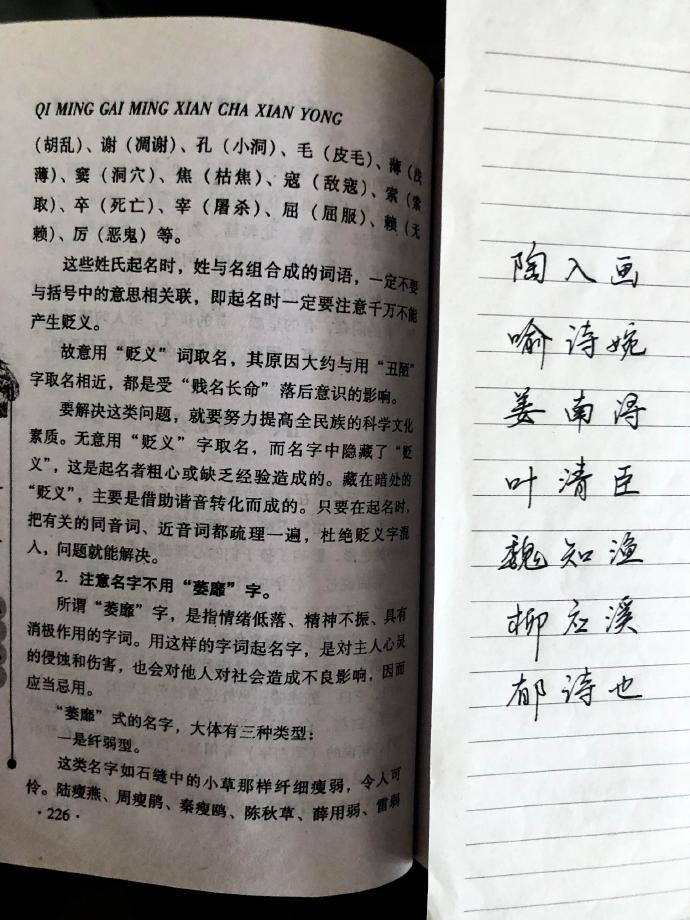 QI MING GAI MING XIAN CHA XIAN YONG
（胡乱）、谢（凋谢）、孔（小洞）、毛（皮毛）、薄（浅
薄）、窦（洞穴）、焦（枯焦）、寇（敌寇）、索（索
取）、卒（死亡）、宰（屠杀）、屈（屈服）、赖（无
赖）、厉（恶鬼）等。
这些姓氏起名时，姓与名组合成的词语，一定不要
与括号中的意思相关联，即起名时一定要注意千万不能
产生贬义。
故意用“贬义”词取名，其原因大约与用“丑陋”
字取名相近，都是受“贱名长命”落后意识的影响。
要解决这类问题，就要努力提高全民族的科学文化
素质。无意用“贬义”字取名，而名字中隐藏了“贬
义”，这是起名者粗心或缺乏经验造成的。藏在暗处的
“贬义”，主要是借助谐音转化而成的。只要在起名时，
把有关的同音词、近音词都疏理一遍，杜绝贬义字混
入，问题就能解决。
2．注意名字不用“萎靡”字。
所谓“萎靡”字，是指情绪低落、精神不振、具有
消极作用的字词。用这样的字词起名字，是对主人心灵
的侵蚀和伤害，也会对他人对社会造成不良影响，因而
应当忌用。
“萎靡”式的名字，大体有三种类型：
一是纤弱型。
这类名字如石缝中的小草那样纤细瘦弱，令人可
怜。陆瘦燕、周瘦鹃、秦瘦鸥、陈秋草、薛用弱、雷弱
·226·
陶入画
喻诗婉
姜南浔
叶清臣
魏知渔
柳应溪
郁诗也